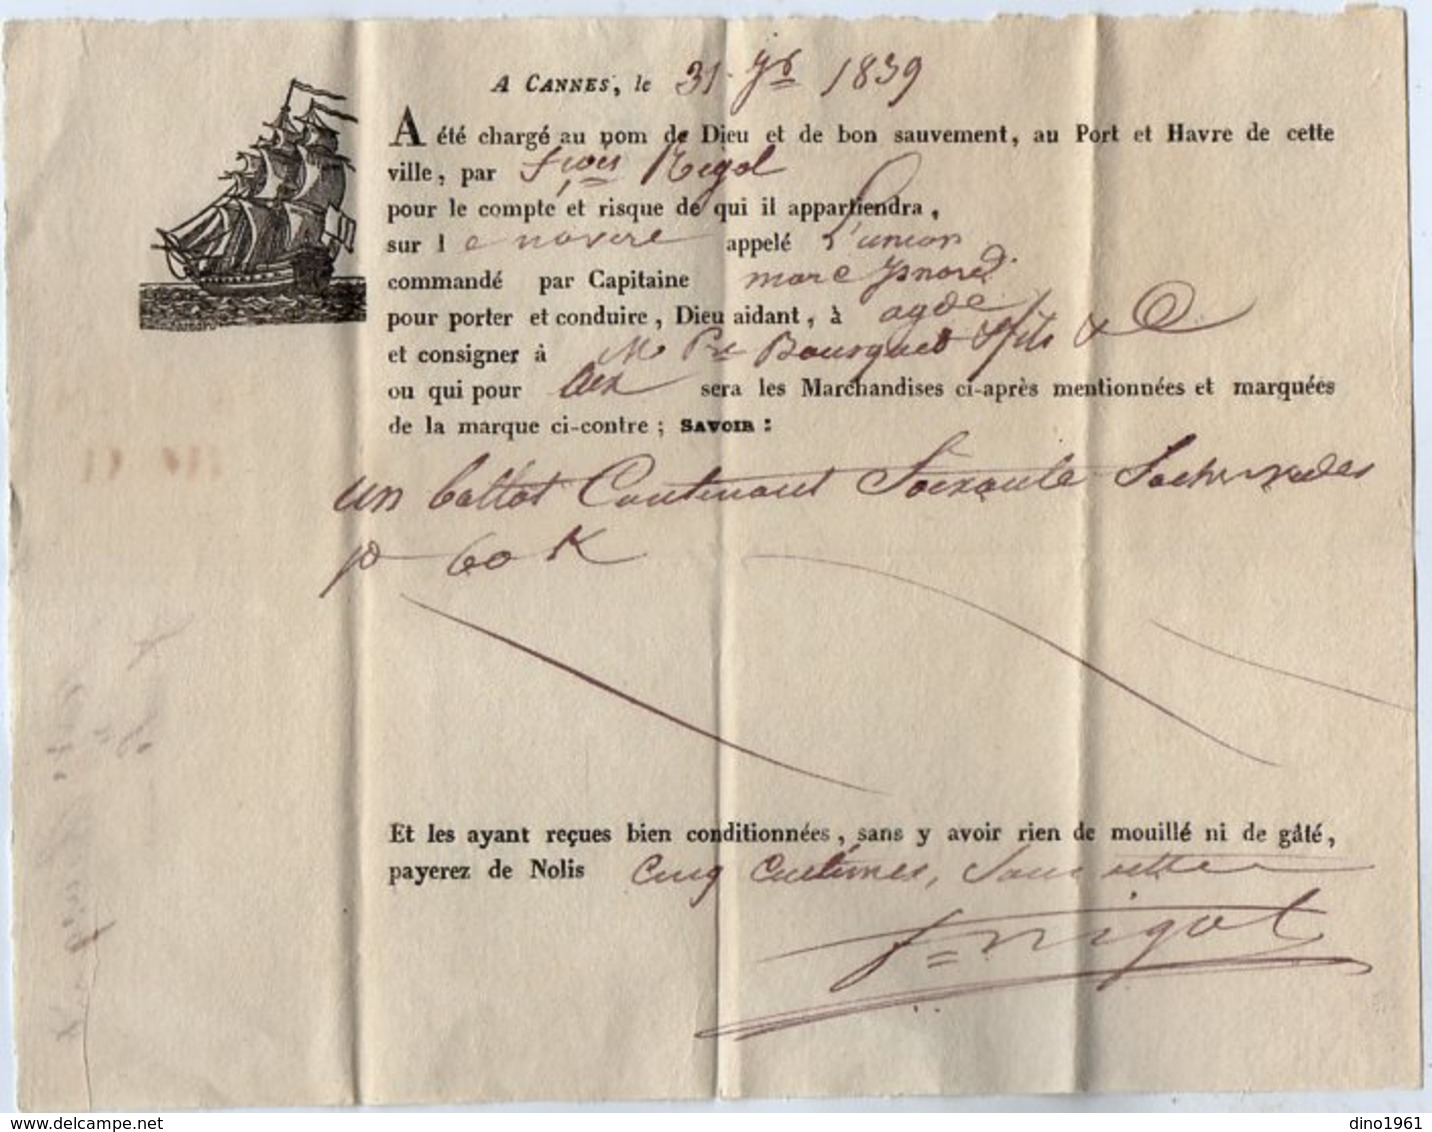 A CANNES, le 31 1839
A été chargé au nom de Dieu et de bon sauvement, au Port et Havre de cette
ville, par fçois Rigal
pour le compte et risque de qui il appartiendra,
sur l e navire appelé L'union
commandé par Capitaine marc ysnard
pour porter et conduire, Dieu aidant, à agde
et consigner à M Pre Bousquet & fils & Co
ou qui pour eux sera les Marchandises ci-après mentionnées et marquées
de la marque ci-contre; SAVOIR:
un ballot Contenant Soixante Sacs vides
p 60 K
Et les ayant reçues bien conditionnées, sans y avoir rien de mouillé ni de gâté,
payerez de Nolis Cinq Centimes, Sans autre
f= rigal
dino1961